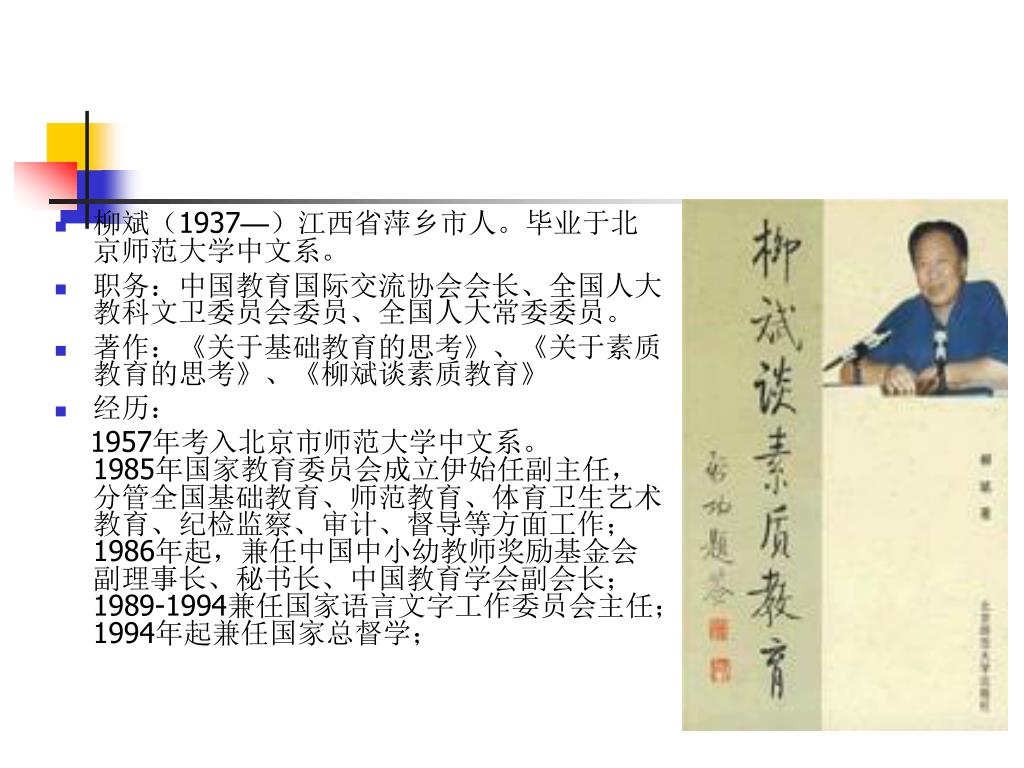 柳斌（1937—）江西省萍乡市人。毕业于北
京师范大学中文系。
职务：中国教育国际交流协会会长、全国人大
教科文卫委员会委员、全国人大常委委员。
著作：《关于基础教育的思考》、《关于素质
教育的思考》、《柳斌谈素质教育》
经历：
1957年考入北京市师范大学中文系。
1985年国家教育委员会成立伊始任副主任，
分管全国基础教育、师范教育、体育卫生艺术
教育、纪检监察、审计、督导等方面工作；
1986年起，兼任中国中小幼教师奖励基金会
副理事长、秘书长、中国教育学会副会长；
1989-1994兼任国家语言文字工作委员会主任；
1994年起兼任国家总督学；
柳斌谈素质教育
启功题签
柳斌著
北京师范大学出版社